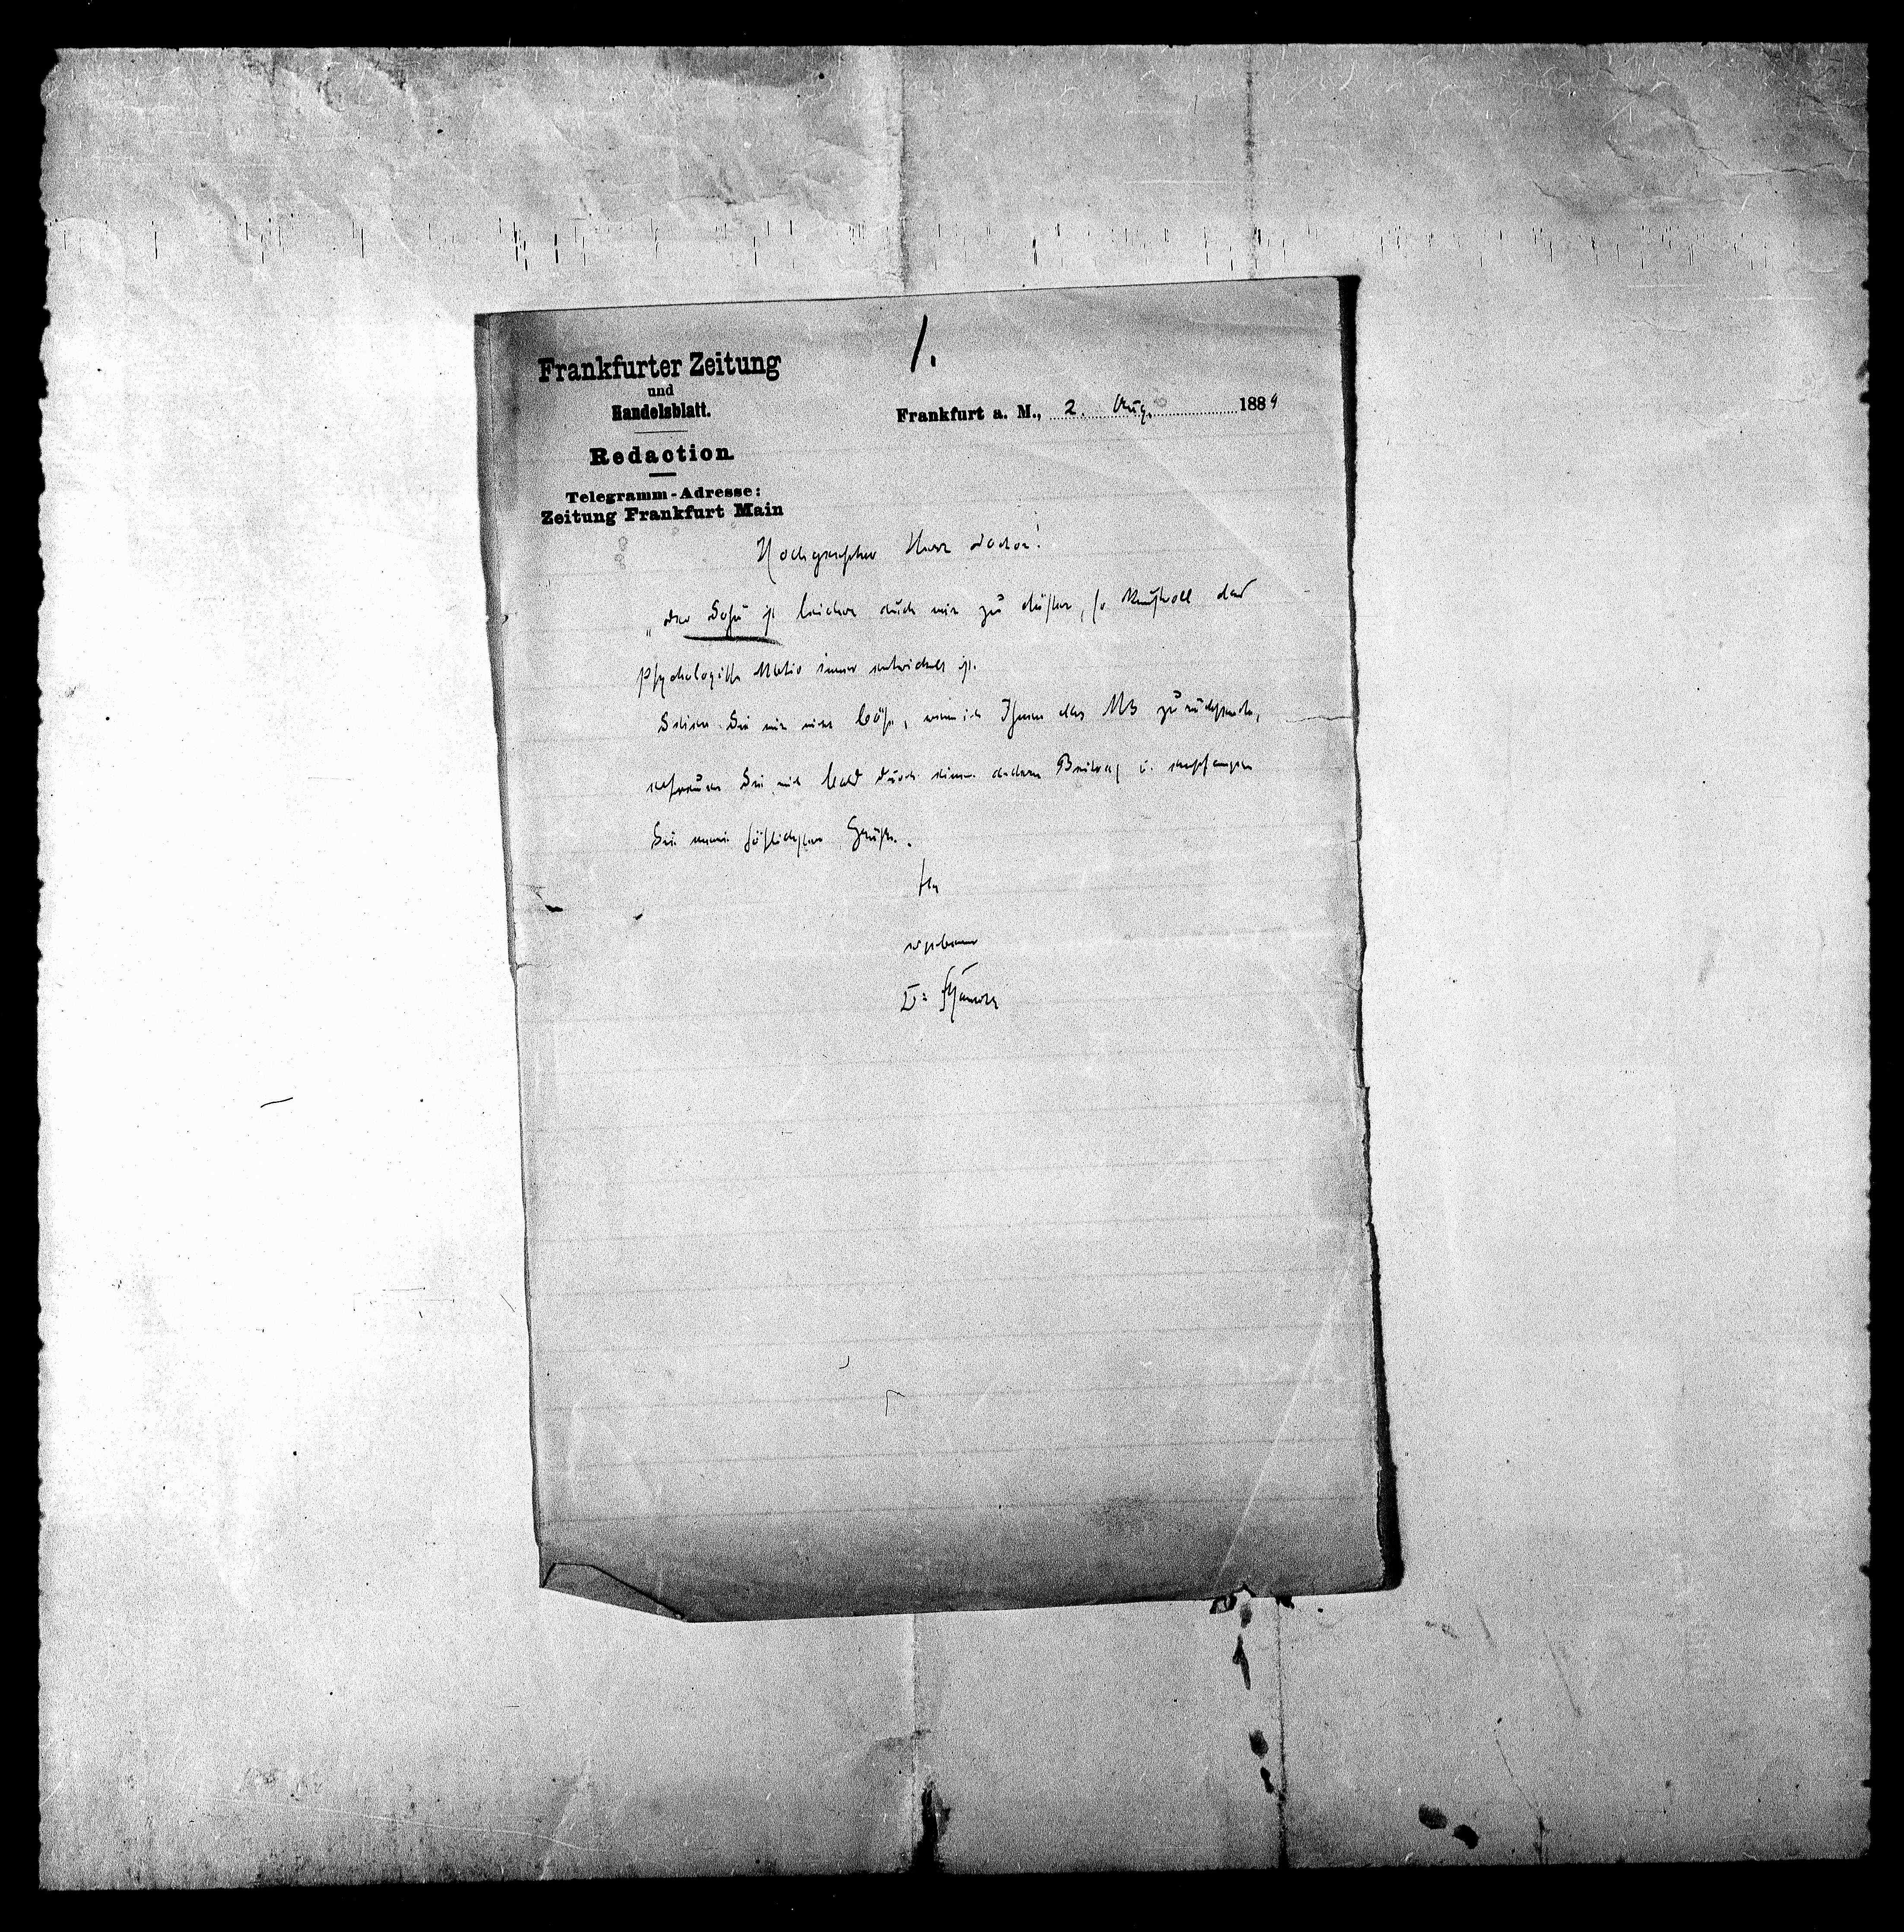 1.
Frankfurter Zeitung
und
Handelsblatt.
Frankfurt a. M., 2. Aug. 1889
Redaction.
Telegramm-Adresse:
Zeitung Frankfurt Main
Hochgeehrter Herr Doctor!
„Der Sohn ist leider auch mir zu düster, so kunstvoll das
psychologische Motiv immer entwickelt ist.
Seien Sie mir nicht böse, wenn ich Ihnen das MS zurücksende,
erfreuen Sie mich bald durch einen anderen Beitrag u. empfangen
Sie meine höflichsten Grüße.
Ihr
ergebener